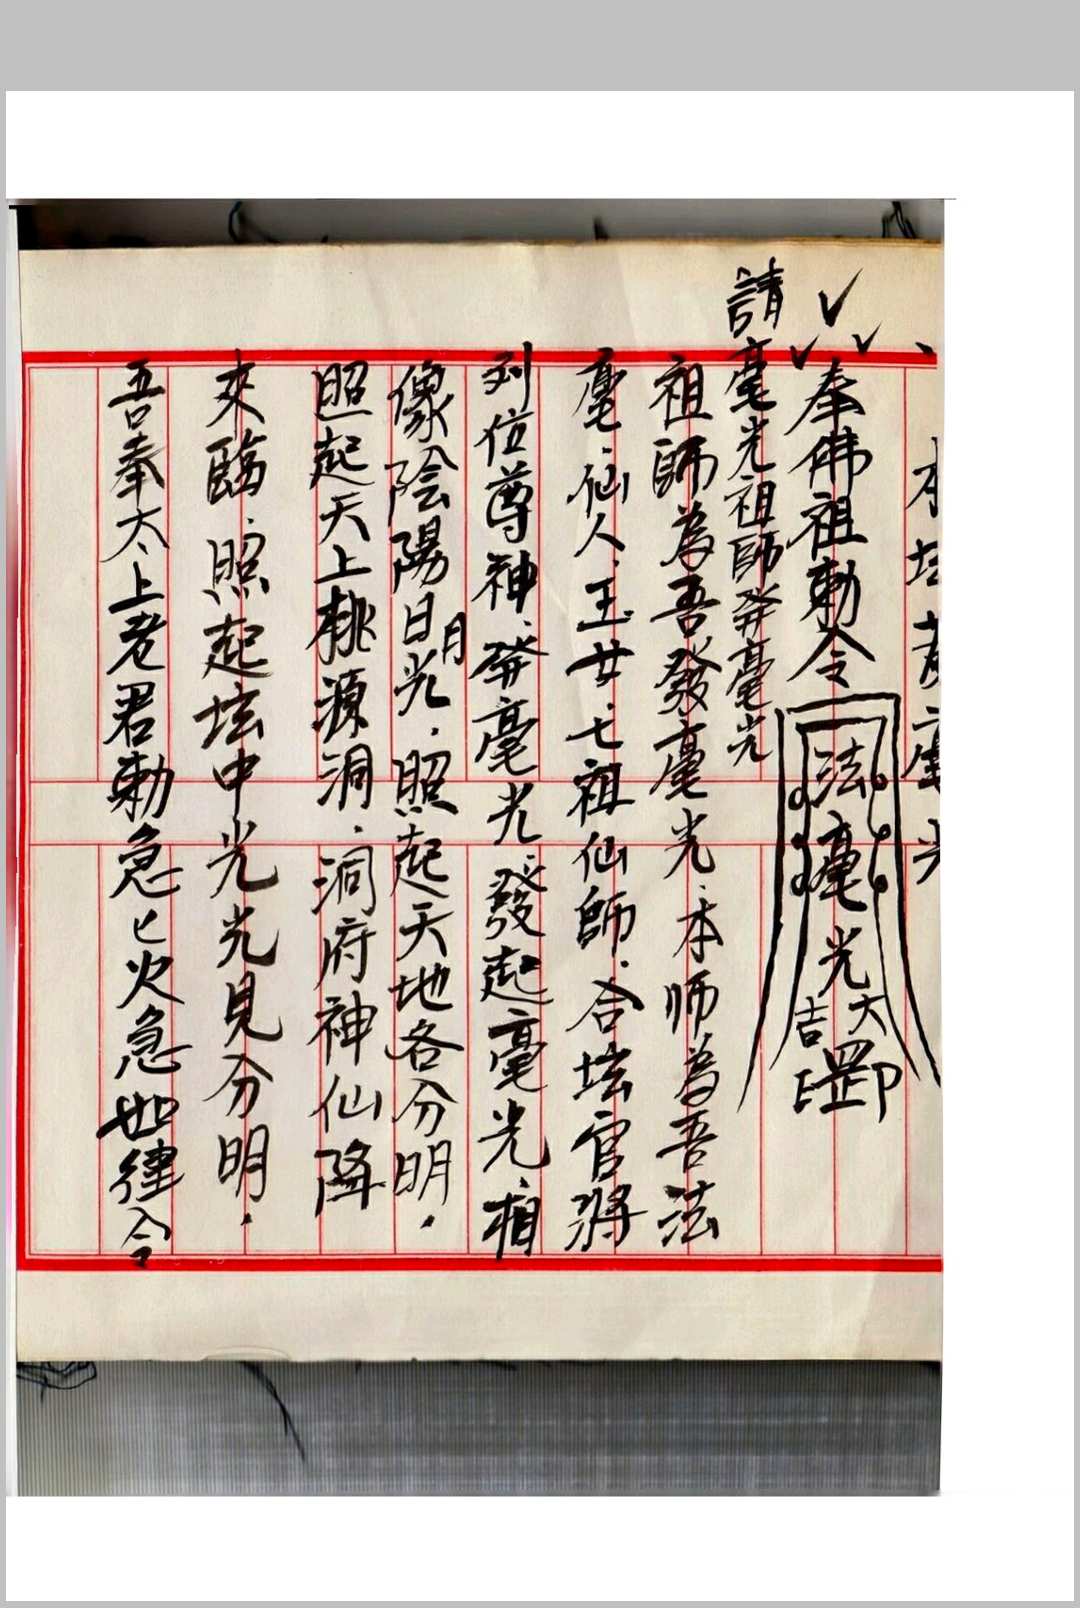 本坛
奉佛祖勅令
法毫光
大吉
罡印
請毫光祖師発毫光
祖師為吾發毫光．本师為吾法
毫．仙人．玉女．七祖仙師．合坛官將
列位尊神．発毫光．發起毫光．相
像陰陽日月光．照起天地各分明．
照起天上桃源洞．洞府神仙降
來臨．照起坛中光光見分明．
吾奉太上老君勅急匕火急如律令